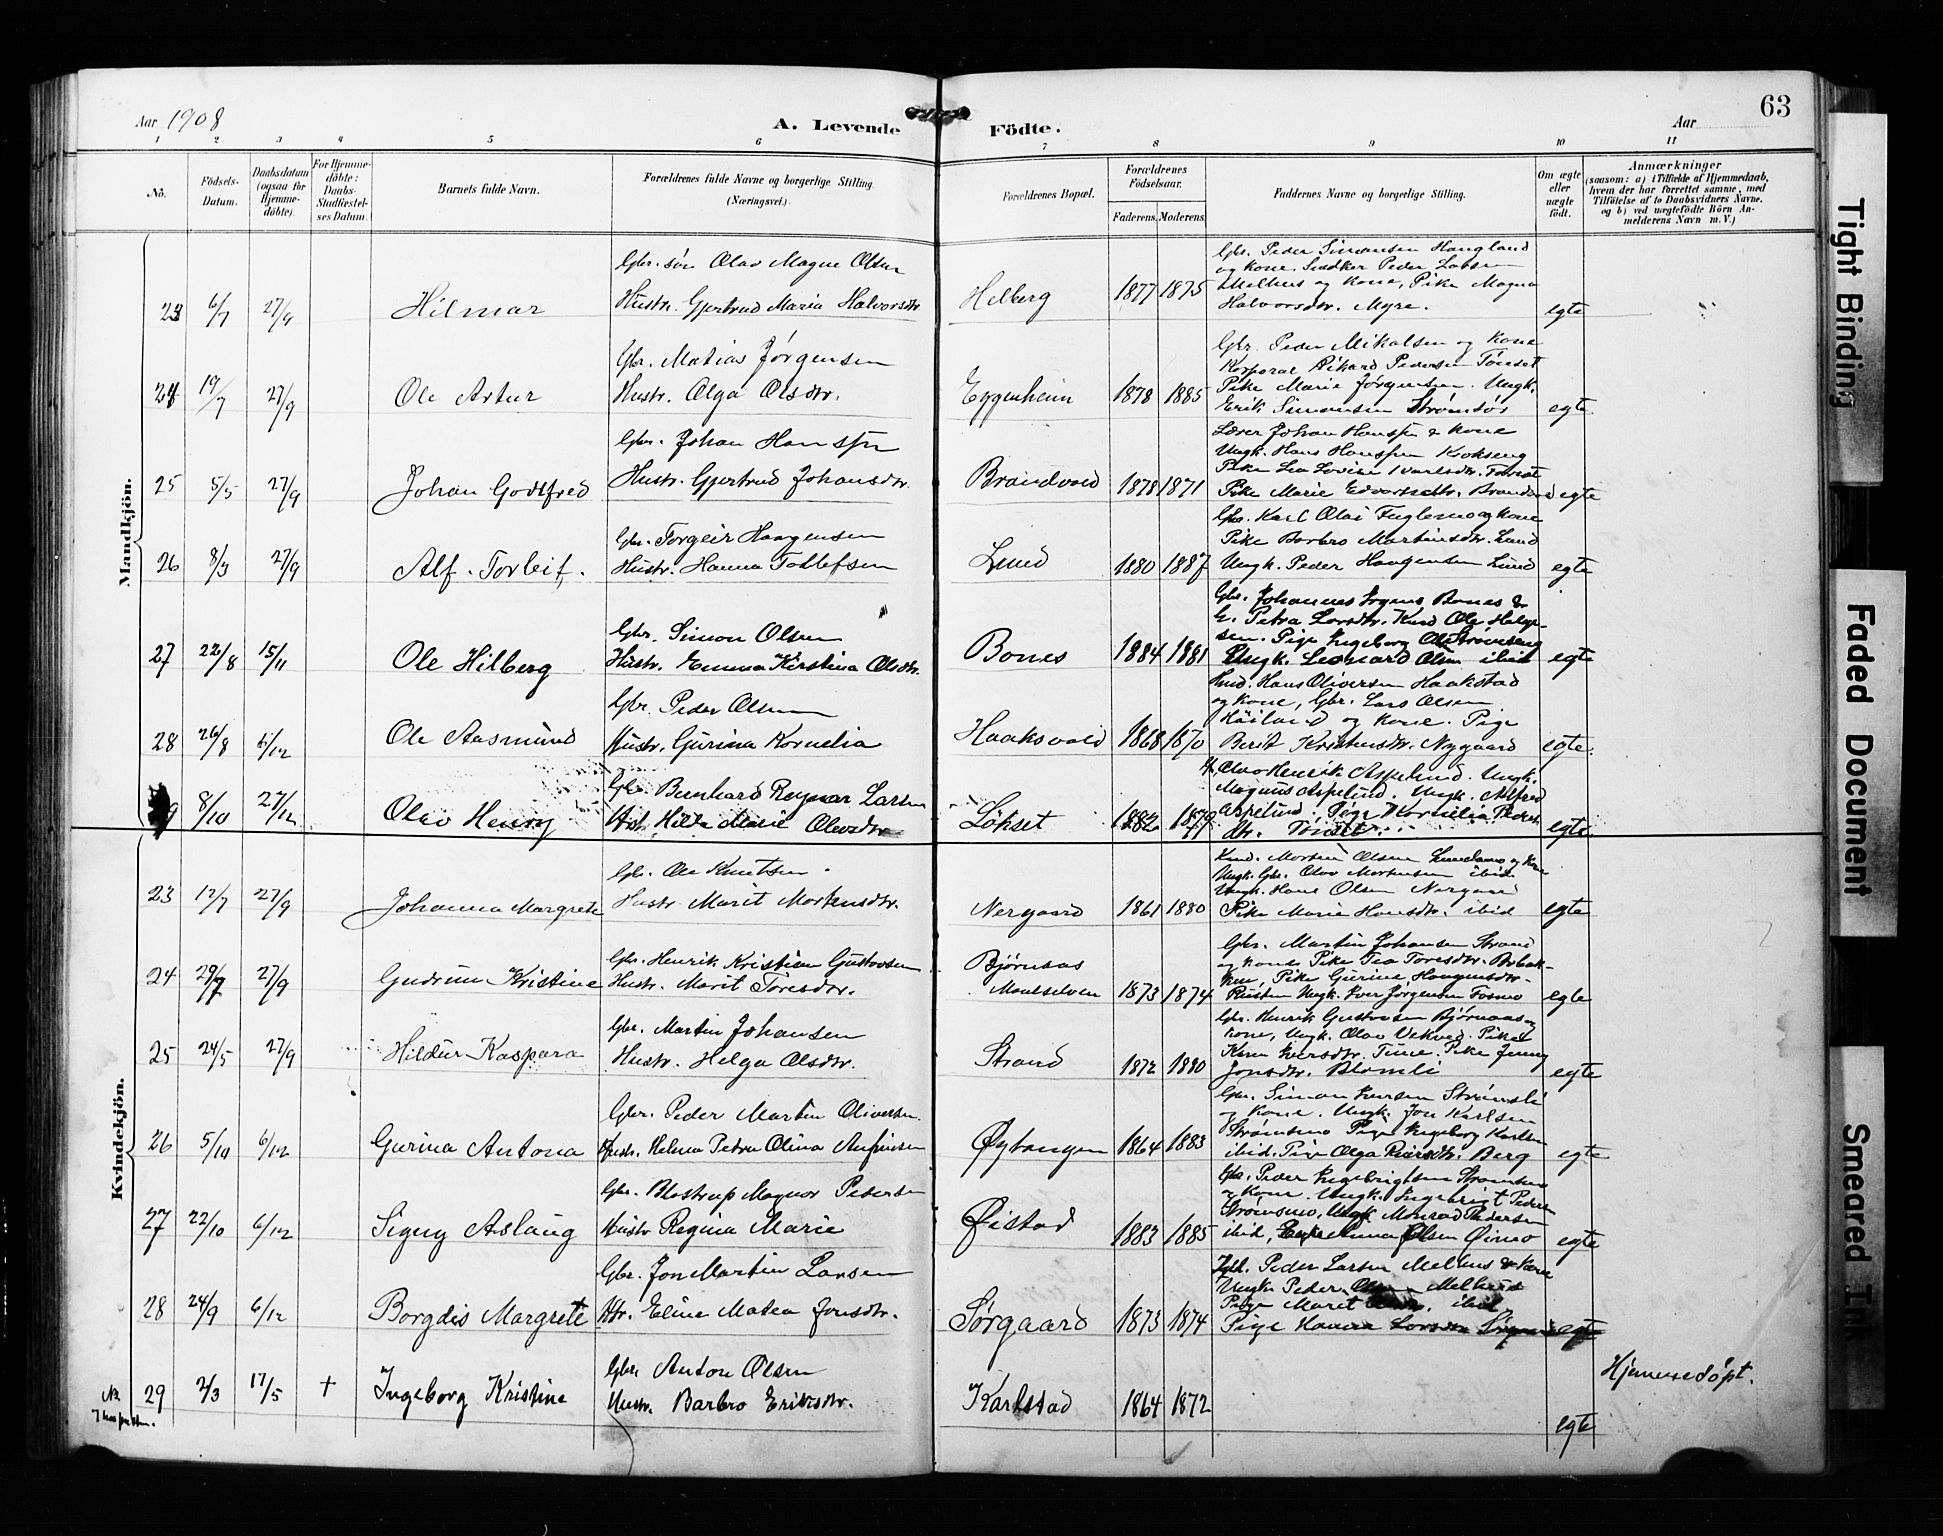 Aar 1908
A. Levende Födte.
Aar
63
1 2 3 4 5 6 7 8 9 10 11
No.
Födsels-Datum.
Daabsdatum (ogsaa for Hjemme-döbte).
For Hjemme-döbte: Daabs-Stadfæstel-ses Datum.
Barnets fulde Navn.
Forældrenes fulde Navne og borgerlige Stilling. (Næringsvei.)
Forældrenes Bopæl.
Forældrenes Födselsaar.
Faderens. Moderens.
Faddernes Navne og borgerlige Stilling.
Om ægte eller uægte födt.
Anmærkninger
(saasom: a) i Tilfælde af Hjemmedaab, hvem der har forrettet samme, med Tilföielse af to Daabsvidners Navne, og b) ved uægtefödte Börn An-melderens Navn m. V.)
Mandkjön.
Gbr. sön Olav Magne Olsen
Gbr. Peder Simonsen Haugland
og Kone. Snedker Peder Larsen
Melhus og Kone, Pike Magna
23 6/7 27/9 Hilmar Hustr. Gjertrud Maria Halvorsdtr. Helberg 1877 1875 Halvorsdtr. Myre. egte
Gbr. Matias Jørgensen
Gbr. Peder Mikalsen og Kone
Korporal Rikard Pedersen Tønset
24 19/7 27/9 Ole Artur Hustr. Olga Olsdtr. Eggenheim 1878 1885 Pike Marie Jørgensen. Ungk.
Erik Simonsen Strømsør egte
Gbr. Johan Hanssen
Lærer Johan Hanssen & Kone
Ungk. Hans Hanssen Kokseng
25 5/5 27/9 Johan Godtfred Hustr. Gjertrud Johansdtr. Brandvold 1878 1871 Pike Marie Edvartsdtr. egte
Gbr. Torgeir Haagensen
Gbr. Karl Olai Fuglemo og Kone
Pike Barbro Martinsdtr. Lund
26 8/3 27/9 Alf. Torleif. Hustr. Hanna Tollefsen Lund 1880 1887 Ungk. Peder Haagensen Lund egte
Gbr. Simon Olsen
Gbr. Johannes Bones &
27 22/8 15/11 Ole Hilberg Hustr. Emma Kirstina Olsdtr. Bones 1884 1881 Ungk. Leonard Olsen ibid egte
Gbr. Peder Olsen
Kmd. Hans Oliversen Haakstad
og Kone, Gbr. Lars Olsen
og Kone. Pige
28 26/8 6/12 Ole Aasmund Hustr. Gurina Kornelia Haaksvold 1868 1870 Berit Kristensdtr. Nygaard egte.
Gbr. Bernhard Ragnar Larsen
Olav Henrik Aspelund. Ungk.
Magnus Aspelund. Ungk. Alfred
Aspelund. Pige Kornelia Peders
9 8/10 27/12 Olav Henry Hst. Hilda Marie Olavsdtr Løkset 1882 1879 dtr. Tønset. egte
Kvindekjön.
Gbr. Ole Knutsen
Kmd. Morten Olsen Lundamo og Kone
Ungk. Gbr. Olav Mortensen ibid
Ungk. Hans Olsen Nergaard
23 12/7 27/9 Johanna Margrete Hustr Marit Mortensdtr. Nergaard 1861 1880 Pike Marie Hansdtr. ibid egte
Gbr. Henrik Kristian Gustavsen
Bjørnaas
Gbr. Martin Johansen Strand
og Kone Pike Tea Toresdtr. Bobak-
ken, Pike Gurine Haagensdtr.
24 29/7 27/9 Gudrun Kristine Hustr. Marit Toresdtr. Maalselven 1873 1874 Rusten Ungk. Iver Jørgensen Fosmo egte
Gbr. Martin Johansen
Gbr. Henrik Gustavsen Bjørnaas og
Kone, Ungk. Olav Vekved. Pike
25 24/5 27/9 Hildur Kaspara Hustr. Helga Olsdtr. Strand 1872 1880 Karen Iversdtr. Pike Jenny
Jonsdtr. Blomli egte
Gbr. Peder Martin Oliversen
Gbr. Simon Iversen Strømsli
og Kone. Ungk. Jon Karlsen
Strømsmo Pige Ingeborg Karlsen
26 5/10 6/12 Gurina Antona Hustr. Helma Petra Olina Anfinsen Øytangen 1864 1883 ibid. Pige Olga Berg egte
Gbr. Blostrup Magnor Pedersen
Gbr. Peder Ingebrigtsen Strømsmo
& Kone. Ungk. Ingebrigt Peders
Strømsmo, Ungk Monrad Pedersen
27 22/10 6/12 Signy Aslaug Hustr Regina Marie Øistad 1883 1885 ibid, Anna Olsen Øimo egte
Gbr. Jon Martin Larsen
Peder Larsen Melhus & Kone
Ungk. Peder Melhus
Pige Marit ibid
28 24/9 6/12 Borgdis Margrete Htr. Eline Matea Jonsdtr. Sørgaard 1873 1874 Pige Hanna Larsdtr egte
Gbr Anton Olsen
Hjemmedöpt.
29 2/3 17/5 + Ingeborg Kristine Hustr. Barbro Eriksdtr. Karlstad 1864 1872 egte
Tight Binding
Faded Document
Smeared Ink